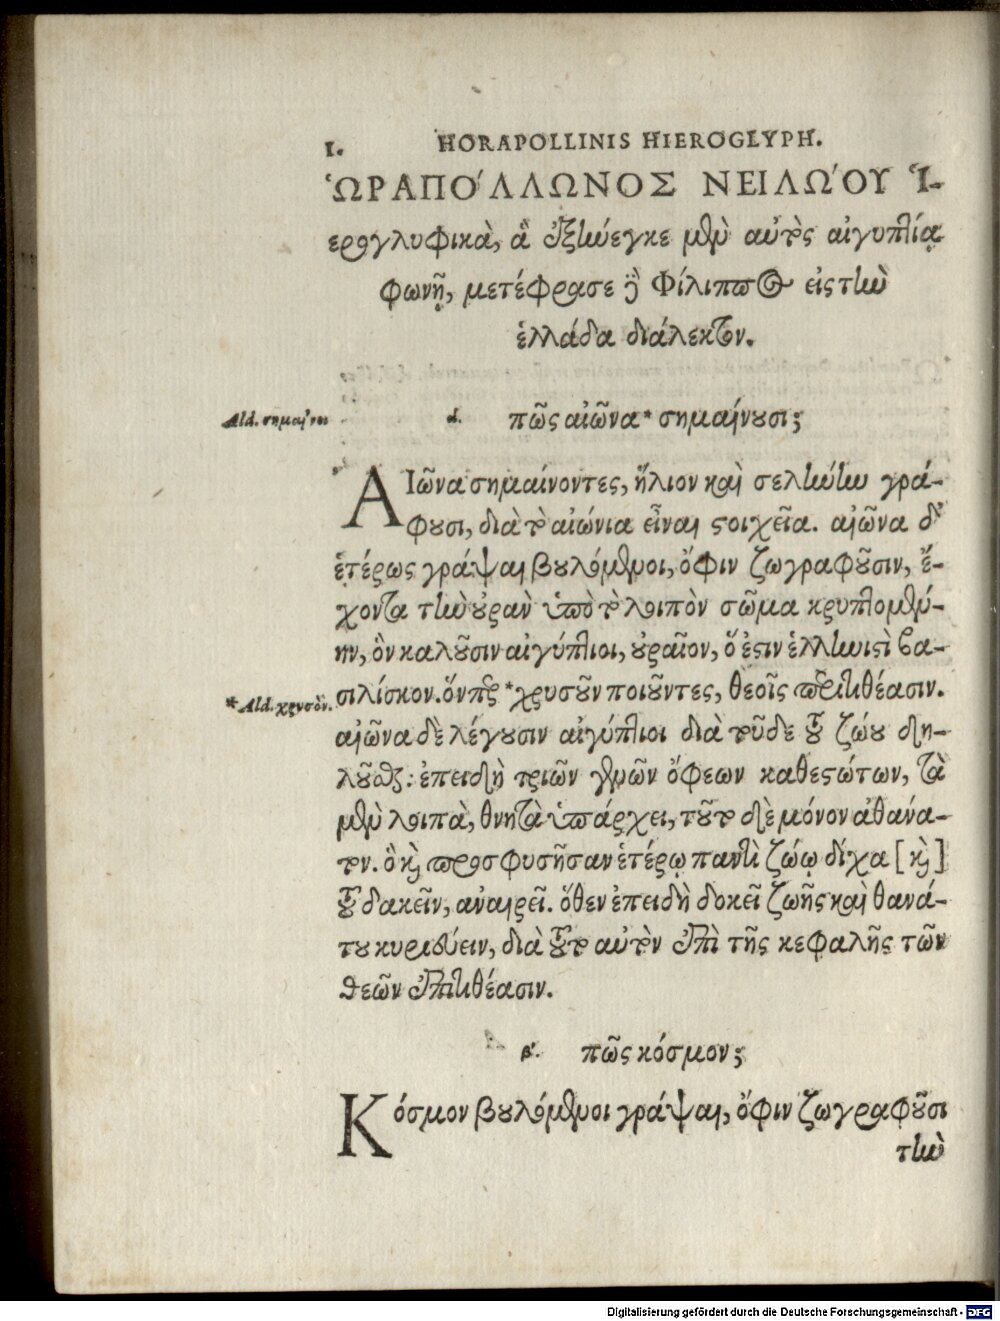 1. HORAPOLLINIS HIEROGLYPH.
ὩΡΑΠΌΛΛΩΝΟΣ ΝΕΙΛΏΟΥ Ἱ-
ερογλυφικὰ, ἃ ἐξήνεγκε μὲν αὐτὸς αἰγυπτίᾳ
φωνῇ, μετέφρασε δὲ Φίλιππος εἰς τὴν
ἑλλάδα διάλεκτον.
Ald. σημαίνει
α. πῶς αἰῶνα* σημαίνουσι;
ΑἸῶνα σημαίνοντες, ἥλιον καὶ σελήνην γρά-
φουσι, διὰ τὸ αἰώνια εἶναι στοιχεῖα. αἰῶνα δ'
ἑτέρως γράψαι βουλόμενοι, ὄφιν ζωγραφοῦσιν, ἔ-
χοντα τὴν οὐρὰν ὑπὸ τὸ λοιπὸν σῶμα κρυπτομέ-
νην, ὃν καλοῦσιν αἰγύπτιοι, οὐραῖον, ὅ ἐστιν ἑλληνιστὶ βα-
σιλίσκον. ὅνπερ *χρυσοῦν ποιοῦντες, θεοῖς περιτιθέασιν.
*Ald. χρυσὸν.
αἰῶνα δὲ λέγουσιν αἰγύπτιοι διὰ τοῦδε τοῦ ζώου δη-
λοῦσθαι: ἐπειδὴ τριῶν γενῶν ὄφεων καθεστώτων, τὰ
μὲν λοιπὰ, θνητὰ ὑπάρχει, τοῦτο δὲ μόνον ἀθάνα-
τον. ὃ καὶ προσφυσῆσαν ἑτέρῳ παντὶ ζώῳ δίχα [καὶ]
τοῦ δακεῖν, ἀναιρεῖ. ὅθεν ἐπειδὴ δοκεῖ ζωῆς καὶ θανά-
του κυριεύειν, διὰ τοῦτο αὐτὸν ἐπὶ τῆς κεφαλῆς τῶν
θεῶν ἐπιτιθέασιν.
β'. πῶς κόσμον;
Κόσμον βουλόμενοι γράψαι, ὄφιν ζωγραφοῦσι
τὴν
Digitalisierung gefördert durch die Deutsche Forschungsgemeinschaft - DFG